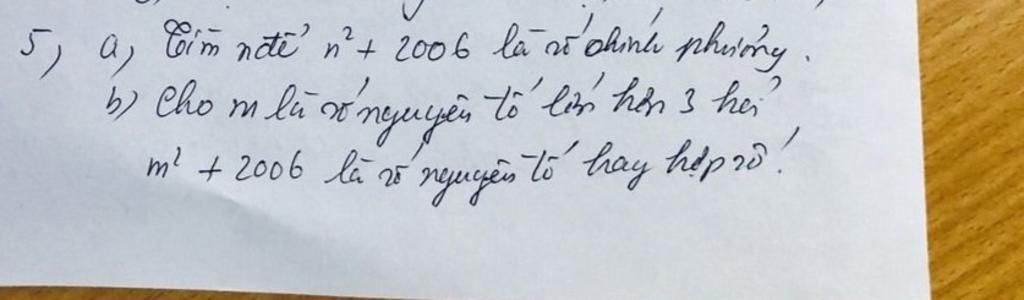 5, a, Tìm n để n² + 2006 là số chính phương.
b) Cho m là số nguyên tố lớn hơn 3 hỏi
m² + 2006 là số nguyên tố hay hợp số!